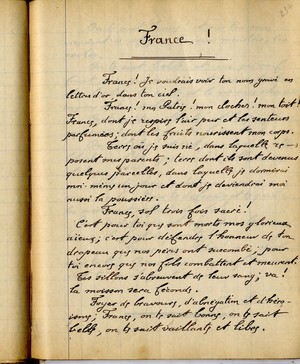 France !
France ! Je voudrais voir ton nom gravé en
lettres d'or dans ton ciel.
France ! ma Patrie ! mon clocher ! mon toit !
France, dont je respire l'air pur et les senteurs
parfumées ; dont les fruits nourrissent mon corps.
Terre où je suis né, dans laquelle re-
posent mes parents ; terre dont ils sont devenus
quelques parcelles, dans laquelle je dormirai
moi-même un jour et dont je deviendrai moi
aussi la poussière.
France, sois trois fois sacré !
C'est pour toi que sont morts nos glorieux
aïeux ; c'est pour défendre l'honneur de ton
drapeau que nos pères ont succombé ; pour
toi encore que nos fils combattent et meurent.
Tes sillons s'abreuvent de leur sang ; va !
la moisson sera féconde.
Foyer de bravoure, d'abnégation et d'héro-
ïsme ; France, on te sait bonne, on te sait
belle, on te sait vaillante et libre.